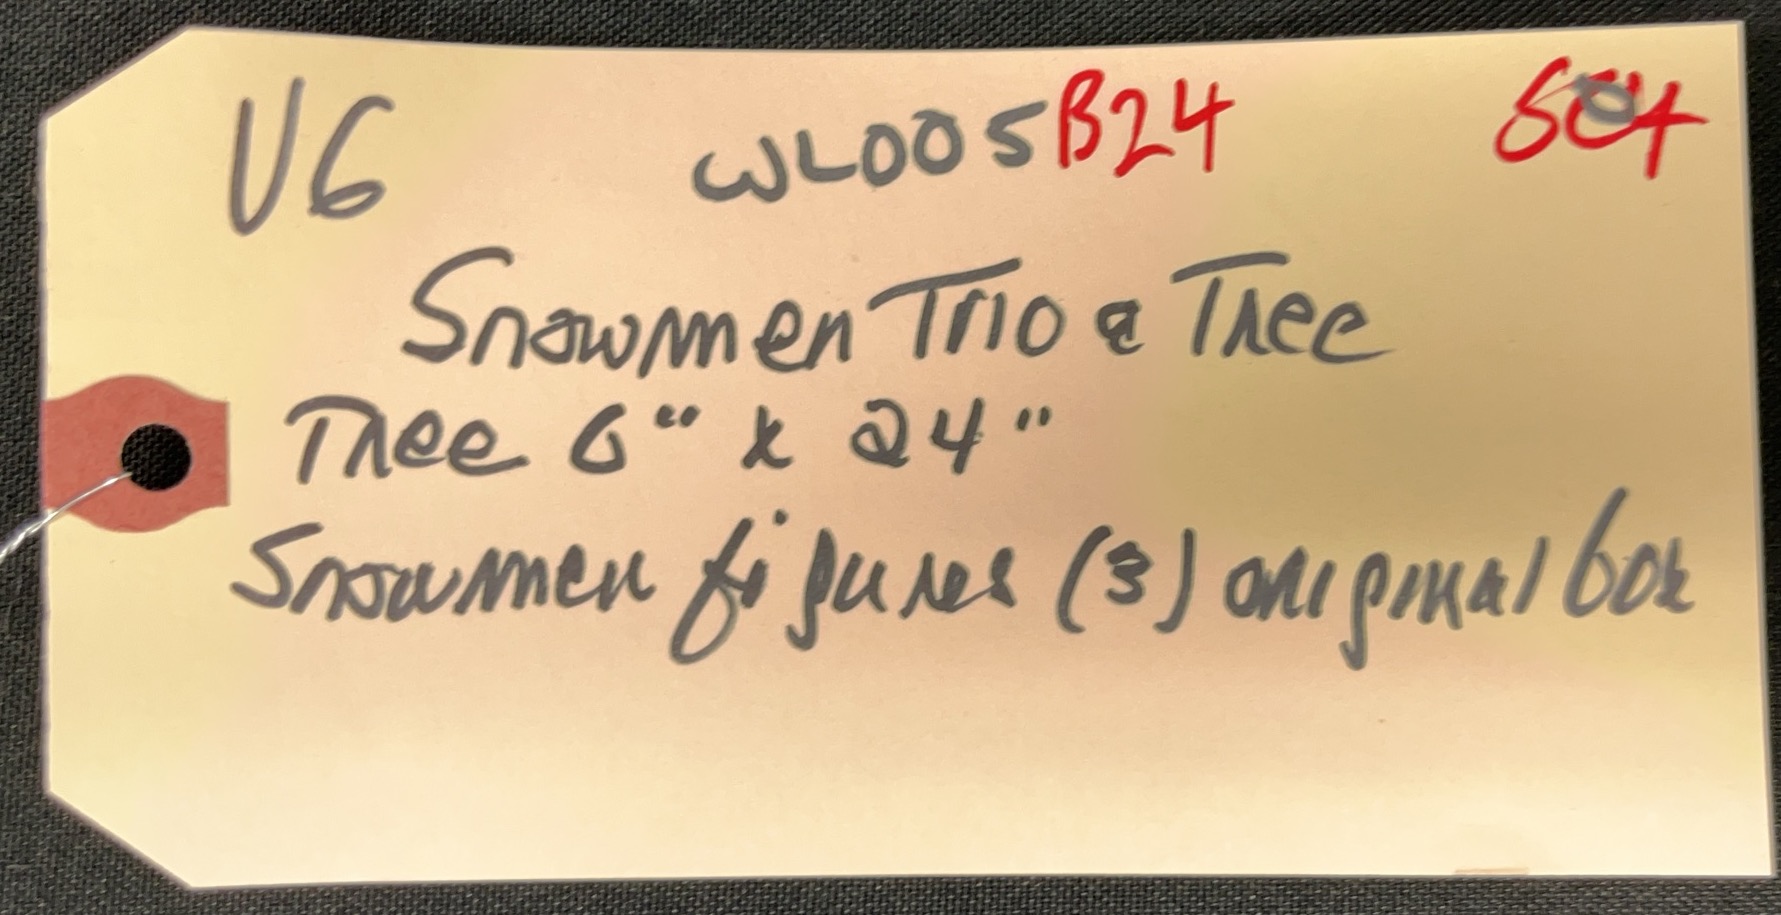 V6 WL005 B24
Snowmen Trio & Tree
Tree 6" x 24"
Snowmen figures (3) original box